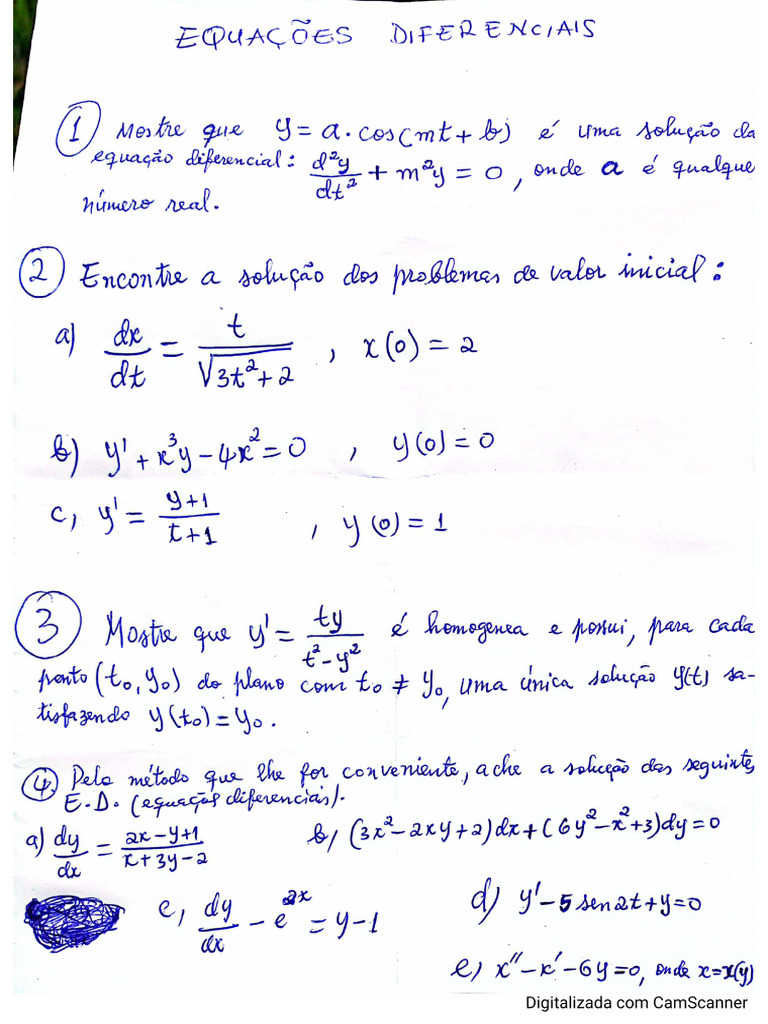 EQUAÇÕES DIFERENCIAIS
① Mostre que y = a · cos(mt + b) é uma solução da
equação diferencial: d²y/dt² + m²y = 0, onde a é qualque
número real.
② Encontre a solução dos problemas de valor inicial:
a) dx/dt = t/√(3t²+2) , x(0) = 2
b) y' + x³y - 4x² = 0 , y(0) = 0
c, y' = (y+1)/(t+1) , y(0) = 1
③ Mostre que y' = ty/(t²-y²) é homogenea e possui, para cada
ponto (t₀, y₀) do plano com t₀ ≠ y₀, uma única solução y(t) sa-
tisfazendo y(t₀) = y₀.
④ Pelo método que lhe for conveniente, ache a solução das seguintes
E.D. (equações diferenciais).
a) dy/dx = (2x-y+1)/(x+3y-2) b, (3x²-2xy+2)dx + (6y²-x²+3)dy = 0
c, dy/dx - e²ˣ = y-1 d) y' - 5 sen2t + y = 0
e) x'' - x' - 6y = 0, onde x = x(y)
Digitalizada com CamScanner